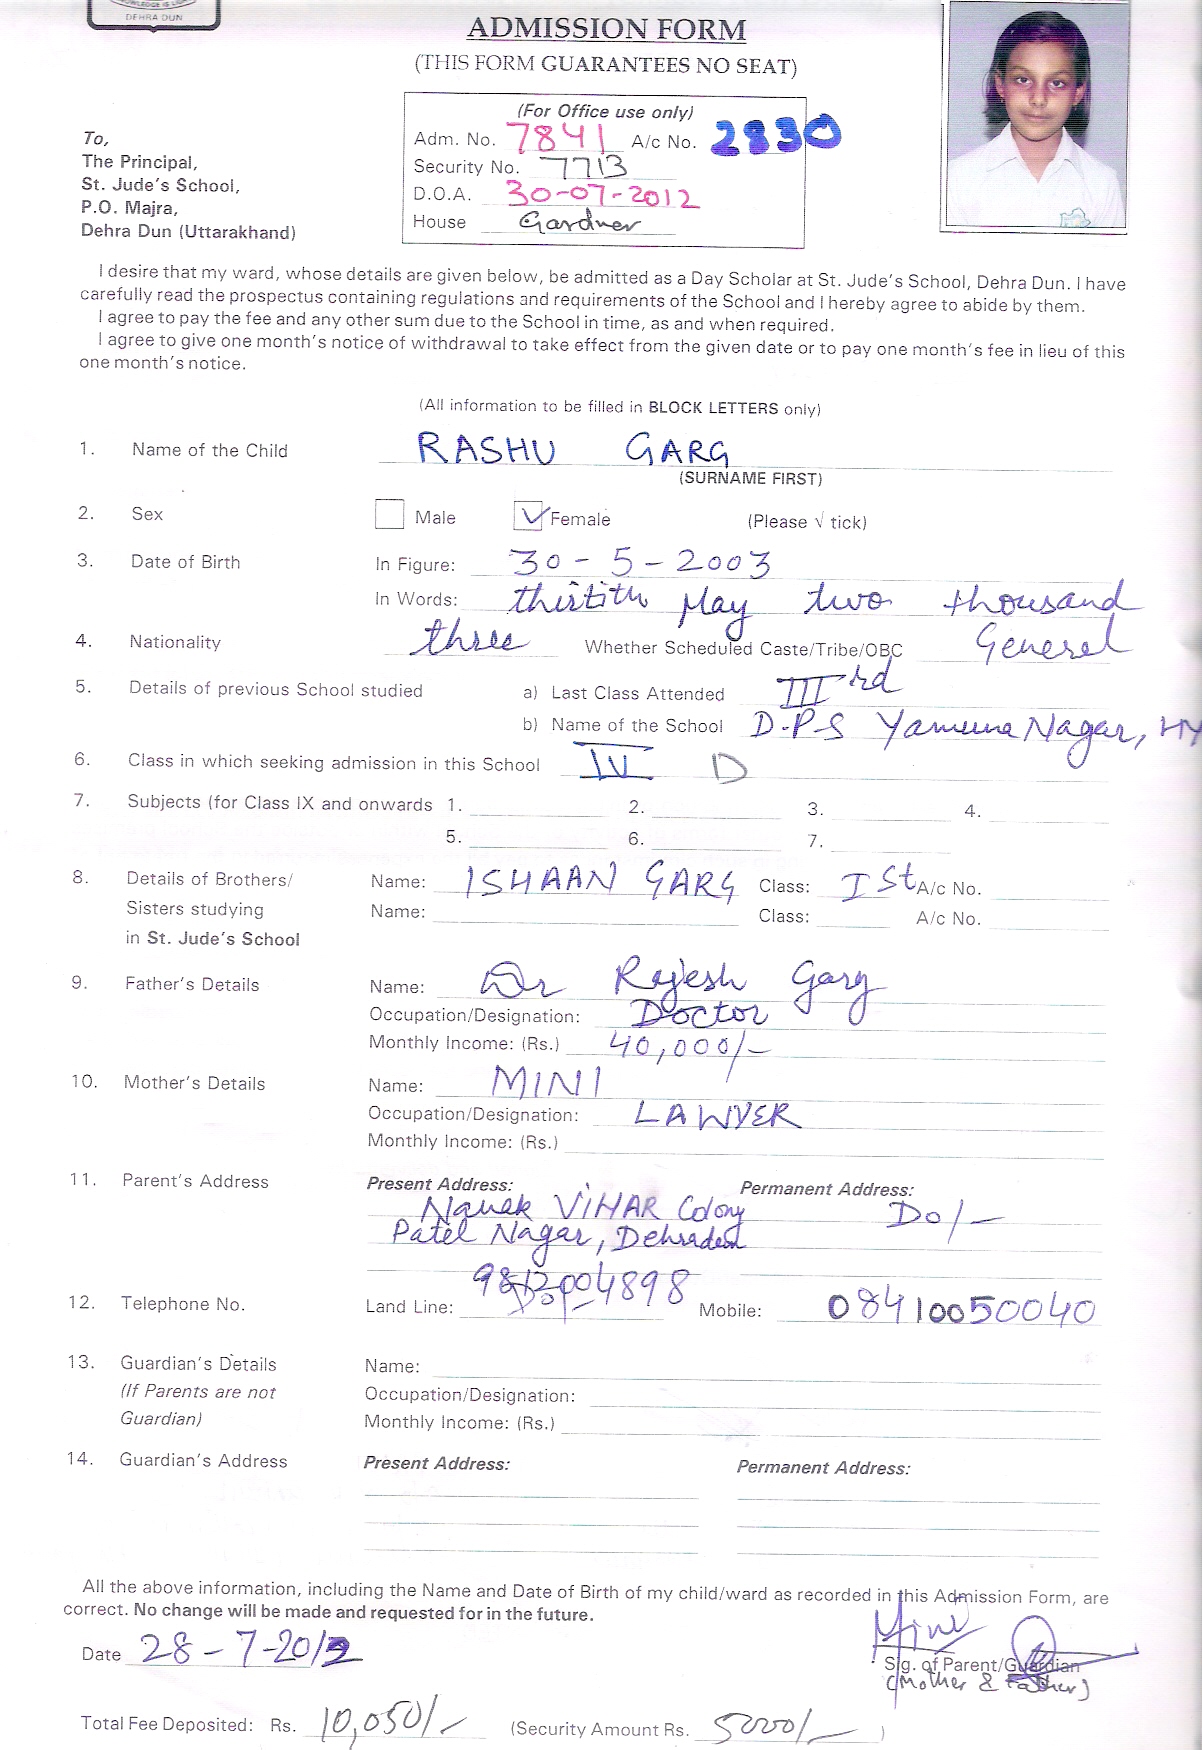 DEHRA DUN
ADMISSION FORM
(THIS FORM GUARANTEES NO SEAT)
(For Office use only)
Adm. No. 7841 A/c No. 2830
Security No. 7713
D.O.A. 30-07-2012
House Gardner
To,
The Principal,
St. Jude's School,
P.O. Majra,
Dehra Dun (Uttarakhand)
I desire that my ward, whose details are given below, be admitted as a Day Scholar at St. Jude's School, Dehra Dun. I have
carefully read the prospectus containing regulations and requirements of the School and I hereby agree to abide by them.
I agree to pay the fee and any other sum due to the School in time, as and when required.
I agree to give one month's notice of withdrawal to take effect from the given date or to pay one month's fee in lieu of this
one month's notice.
(All information to be filled in BLOCK LETTERS only)
1. Name of the Child RASHU GARG
(SURNAME FIRST)
2. Sex Male ✓ Female (Please √ tick)
3. Date of Birth In Figure: 30-5-2003
In Words: thirtith May two thousand
4. Nationality three Whether Scheduled Caste/Tribe/OBC General
5. Details of previous School studied a) Last Class Attended IIIrd
b) Name of the School D.P.S Yamuna Nagar, HY
6. Class in which seeking admission in this School IV D
7. Subjects (for Class IX and onwards 1. 2. 3. 4.
5. 6. 7.
8. Details of Brothers/ Name: ISHAAN GARG Class: Ist A/c No.
Sisters studying Name: Class: A/c No.
in St. Jude's School
9. Father's Details Name: Dr Rajesh Garg
Occupation/Designation: Doctor
Monthly Income: (Rs.) 40,000/-
10. Mother's Details Name: MINI
Occupation/Designation: LAWYER
Monthly Income: (Rs.)
11. Parent's Address Present Address: Permanent Address:
Nanak VIHAR Colony Do/-
Patel Nagar, Dehradun
9812004898
12. Telephone No. Land Line: Mobile: 08410050040
13. Guardian's Details Name:
(If Parents are not Occupation/Designation:
Guardian) Monthly Income: (Rs.)
14. Guardian's Address Present Address: Permanent Address:
All the above information, including the Name and Date of Birth of my child/ward as recorded in this Admission Form, are
correct. No change will be made and requested for in the future.
Mini
Date 28-7-2012
Sig. of Parent/Guardian
(Mother & Father)
Total Fee Deposited: Rs. 10,050/- (Security Amount Rs. 5000/- )